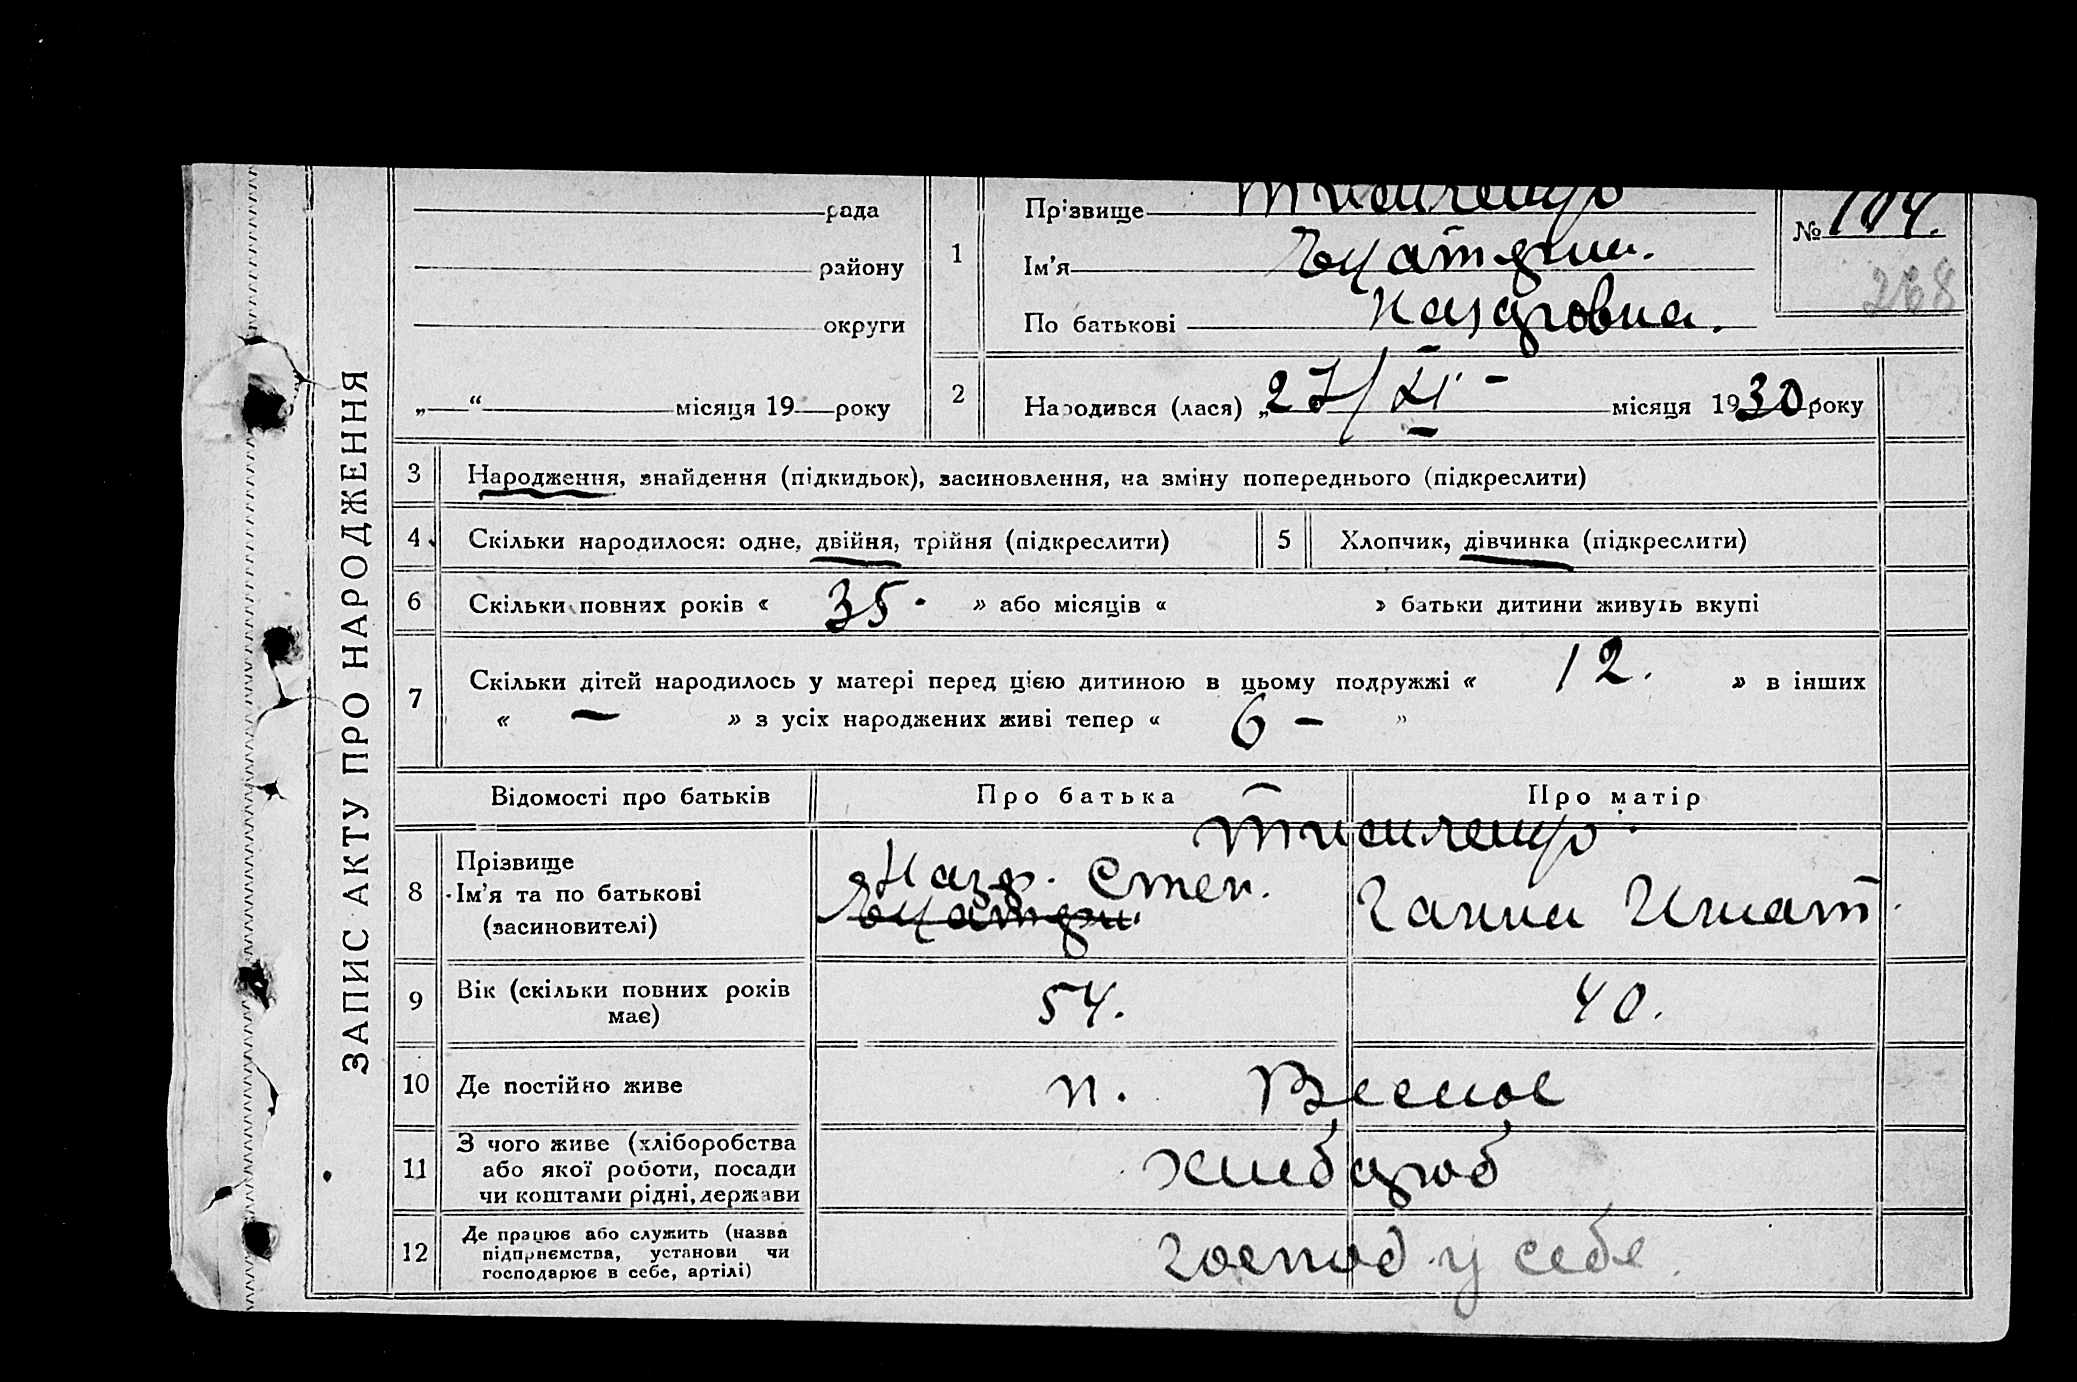 ЗАПИС АКТУ ПРО НАРОДЖЕННЯ
рада
району
округи
„ “ місяця 19 року
1
Прізвище
Ім'я
По батькові Назаровна.
№ 104.
268
2 Народився (лася) „27/XI - місяця 1930 року
3 Народження, знайдення (підкидьок), засиновлення, на зміну попереднього (підкреслити)
4 Скільки народилося: одне, двійня, трійня (підкреслити)
5 Хлопчик, дівчинка (підкреслити)
6 Скільки повних років « 35. » або місяців « » батьки дитини живуть вкупі
7 Скільки дітей народилось у матері перед цією дитиною в цьому подружжі « 12. » в інших
« — » з усіх народжених живі тепер « 6 — »
Відомості про батьків
Про батька
Про матір
8 Прізвище
Ім'я та по батькові
(засиновителі)
Назар. Степ.
Ганна Игнат.
9 Вік (скільки повних років
має)
54.
40.
10 Де постійно живе
п. Весиле
11 З чого живе (хліборобства
або якої роботи, посади
чи коштами рідні, держави
хлебароб
12 Де працює або служить (назва
підприємства, установи чи
господарює в себе, артілі)
господ у себе.